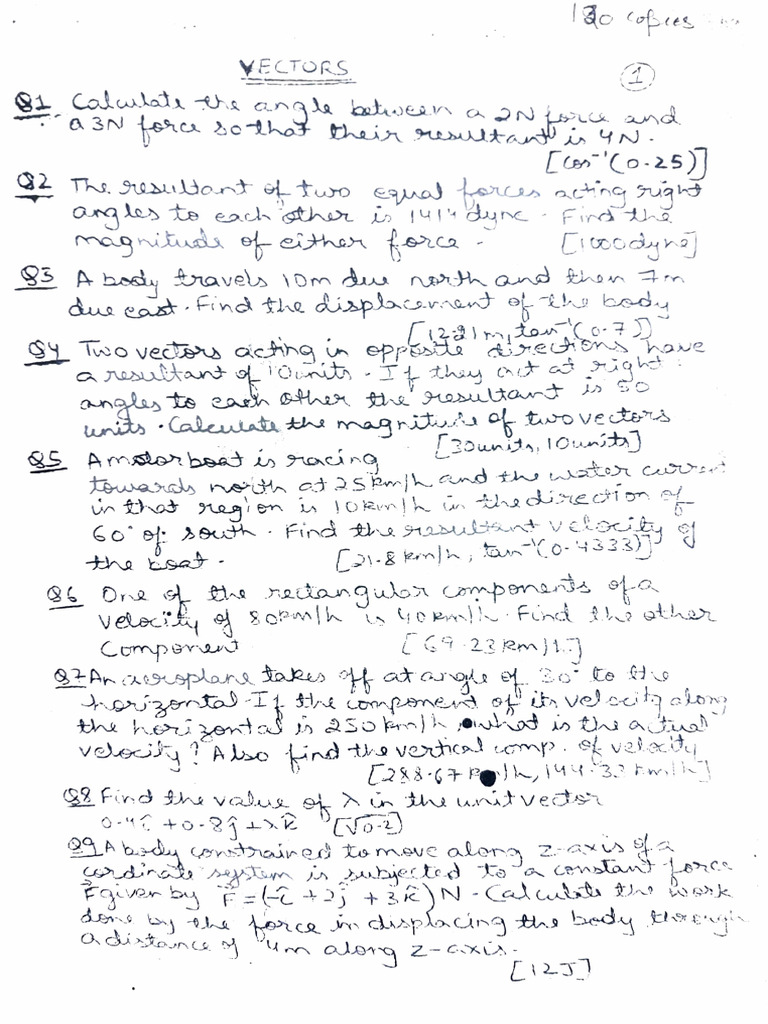 130 copies
VECTORS
1
Q1 Calculate the angle between a 2N force and
a 3N force so that their resultant is 4N.
[cos⁻¹(0.25)]
Q2 The resultant of two equal forces acting right
angles to each other is 1414 dyne. Find the
magnitude of either force. [1000dyne]
Q3 A body travels 10m due north and then 7m
due east. Find the displacement of the body
[12.21m, tan⁻¹(0.7)]
Q4 Two vectors acting in opposite directions have
a resultant of 10 units. If they act at right
angles to each other the resultant is 50
units. Calculate the magnitude of two vectors
[30units, 10units]
Q5 A motorboat is racing
towards north at 25km/h and the water current
in that region is 10km/h in the direction of
60° of south. Find the resultant velocity of
the boat. [21.8km/h, tan⁻¹(0.4333)]
Q6 One of the rectangular components of a
velocity of 80km/h is 40km/h. Find the other
component [69.23km/h]
Q7 An aeroplane takes off at angle of 30° to the
horizontal. If the component of its velocity along
the horizontal is 250km/h, what is the actual
velocity? Also find the vertical comp. of velocity
[288.67km/h, 144.33km/h]
Q8 Find the value of λ in the unit vector
0.4î + 0.8ĵ + λk̂ [√0.2]
Q9 A body constrained to move along z-axis of a
cordinate system is subjected to a constant force
F given by F⃗ = (-î + 2ĵ + 3k̂) N. Calculate the work
done by the force in displacing the body through
a distance of 4m along z-axis.
[12J]